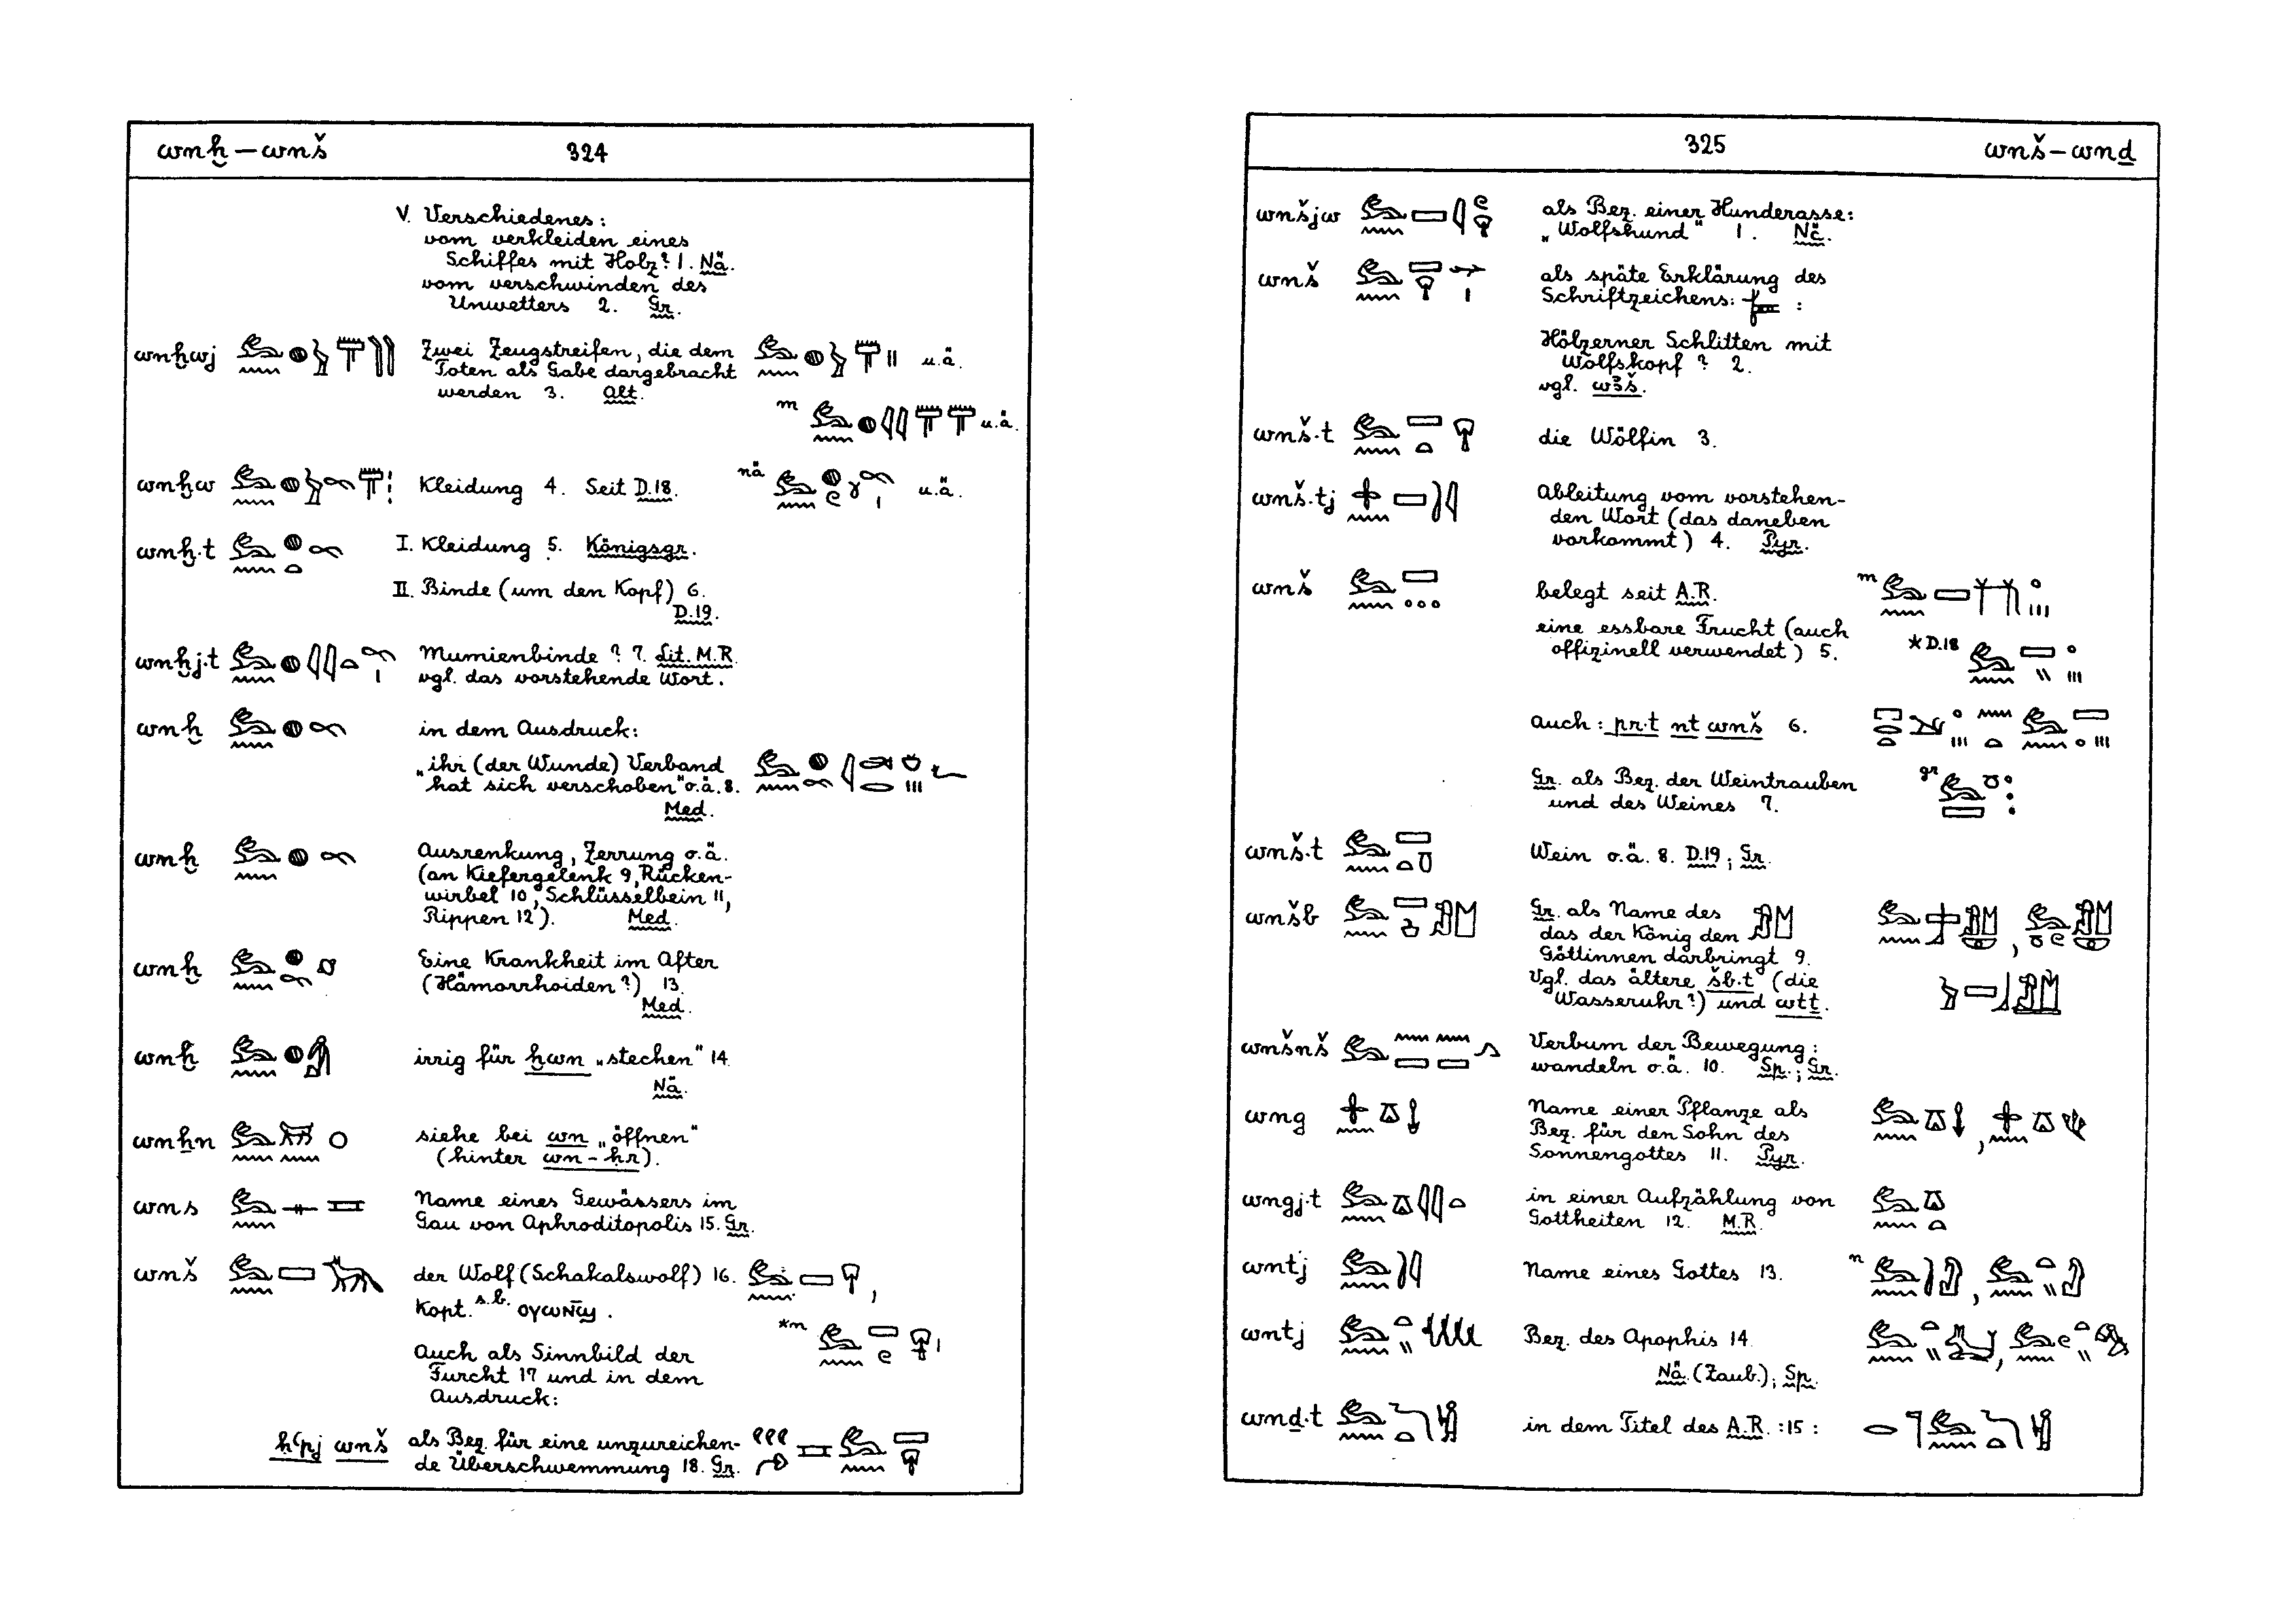 wnḫ – wnš 324
V. Verschiedenes:
vom verkleiden eines
Schiffes mit Holz? 1. Nä.
vom verschwinden des
Unwetters 2. Gr.
wnḫwj Zwei Zeugstreifen, die dem u.ä.
Toten als Gabe dargebracht
werden 3. Alt.
m u.ä.
wnḫw Kleidung 4. Seit D.18. nä u.ä.
wnḫ.t I. Kleidung 5. Königsgr.
II. Binde (um den Kopf) 6.
D.19.
wnḫj.t Mumienbinde? 7. Lit. M.R.
vgl. das vorstehende Wort.
wnḫ in dem Ausdruck:
„ihr (der Wunde) Verband
hat sich verschoben" o.ä. 8.
Med.
wnḫ Ausrenkung, Zerrung o.ä.
(an Kiefergelenk 9, Rücken-
wirbel 10, Schlüsselbein 11,
Rippen 12). Med.
wnḫ Eine Krankheit im After
(Hämorrhoiden?) 13.
Med.
wnḫ irrig für ḫwn „stechen" 14.
Nä.
wnẖn siehe bei wn „öffnen"
(hinter wn-ḥr).
wns Name eines Gewässers im
Gau von Aphroditopolis 15. Gr.
wnš der Wolf (Schakalswolf) 16. ,
Kopt. s.b. ⲟⲩⲱⲛ̅ϣ.
*m
Auch als Sinnbild der
Furcht 17 und in dem
Ausdruck:
ḥꜥpj wnš als Bez. für eine unzureichen-
de Überschwemmung 18. Gr.
325 wnš – wnḏ
wnšjw als Bez. einer Hunderasse:
„Wolfshund" 1. Nä.
wnš als späte Erklärung des
Schriftzeichens: :
Hölzerner Schlitten mit
Wolfskopf? 2.
vgl. wꜣš.
wnš.t die Wölfin 3.
wnš.tj Ableitung vom vorstehen-
den Wort (das daneben
vorkommt) 4. Pyr.
wnš belegt seit A.R. m
eine essbare Frucht (auch
offizinell verwendet) 5. *D.18
auch: pr.t nt wnš 6.
Gr. als Bez. der Weintrauben gr
und des Weines 7.
wnš.t Wein o.ä. 8. D.19; Gr.
wnšb Gr. als Name des ,
das der König den
Göttinnen darbringt 9.
Vgl. das ältere šb.t (die
Wasseruhr?) und wtṯ.
wnšnš Verbum der Bewegung:
wandeln o.ä. 10. Sp.; Gr.
wng Name einer Pflanze als ,
Bez. für den Sohn des
Sonnengottes 11. Pyr.
wngj.t in einer Aufzählung von
Gottheiten 12. M.R.
wntj Name eines Gottes 13. n ,
wntj Bez. des Apophis 14. ,
Nä. (Zaub.); Sp.
wnḏ.t in dem Titel des A.R.: 15: